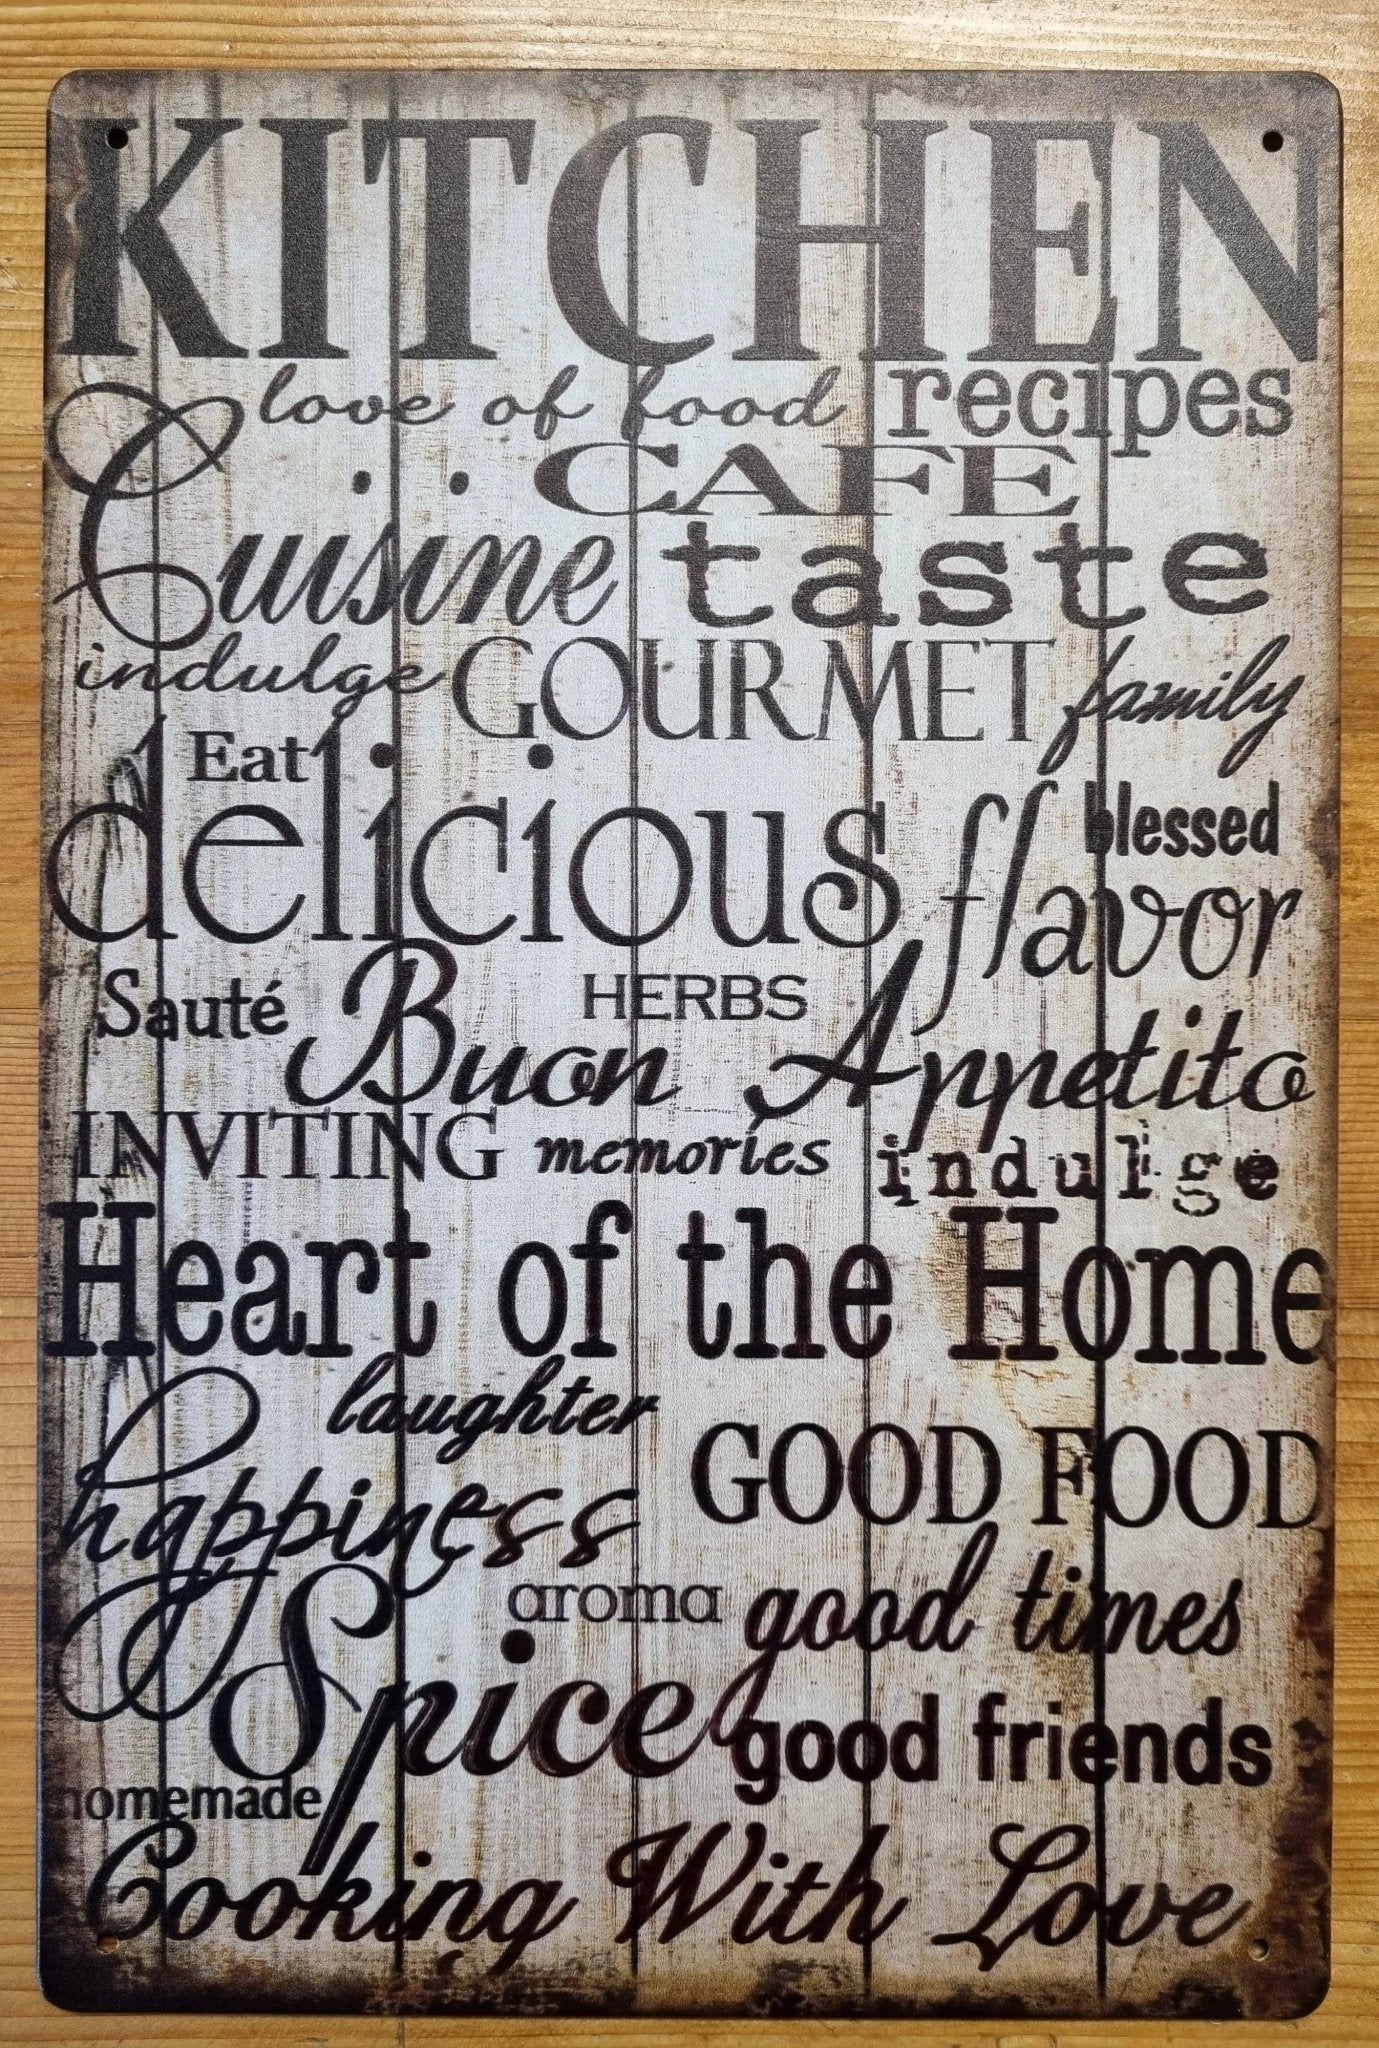 KITCHEN
love of food recipes
CAFE
Cuisine taste
indulge GOURMET family
Eat
delicious flavor blessed
Sauté Buon HERBS Appetito
INVITING memories indulge
Heart of the Home
laughter
happiness GOOD FOOD
aroma good times
Spice good friends
homemade
Cooking With Love